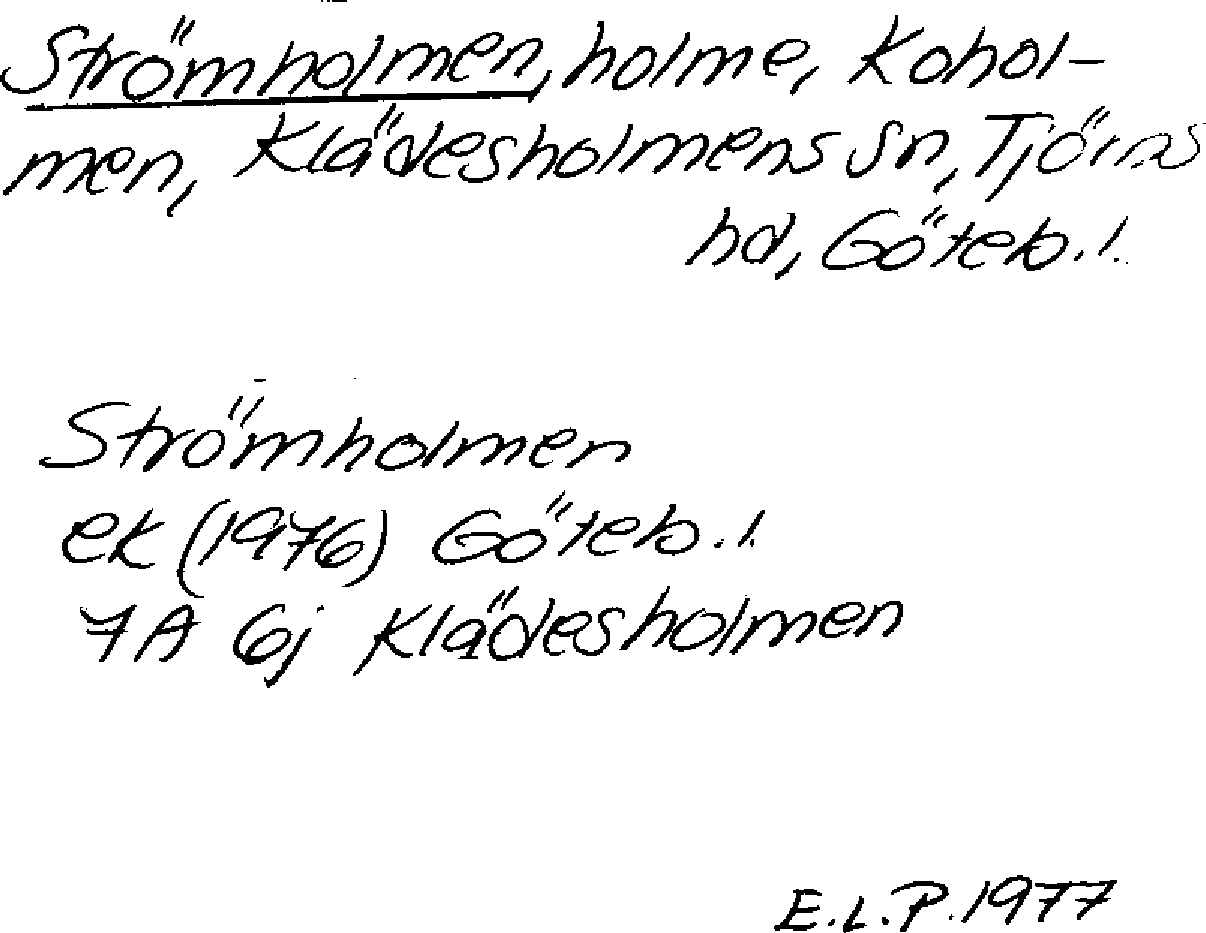 Strömholmen, holme, Kohol-
men, Klädesholmens sn, Tjörns
hd, Göteb. l.
Strömholmen
ek (1976) Göteb. l.
7A 6j Klädesholmen
E.L.P. 1977